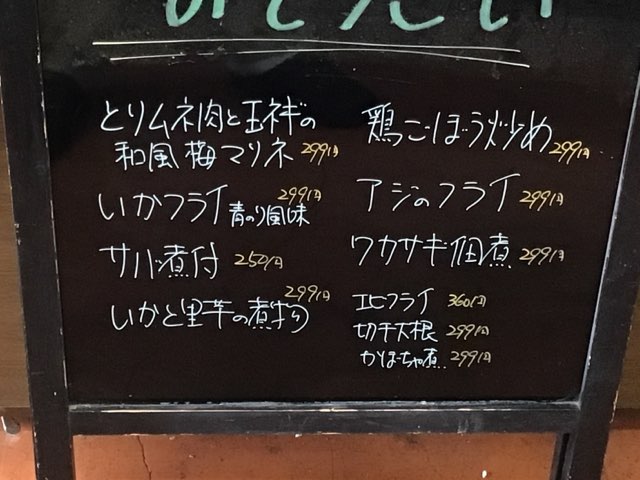 とりムネ肉と玉ネギの
和風梅マリネ 299円
いかフライ青のり風味 299円
サバ煮付 250円
いかと里芋の煮物 299円
鶏ごぼう炒め 299円
アジのフライ 299円
ワカサギ佃煮 299円
エビフライ 360円
切干大根 299円
かぼちゃ煮 299円